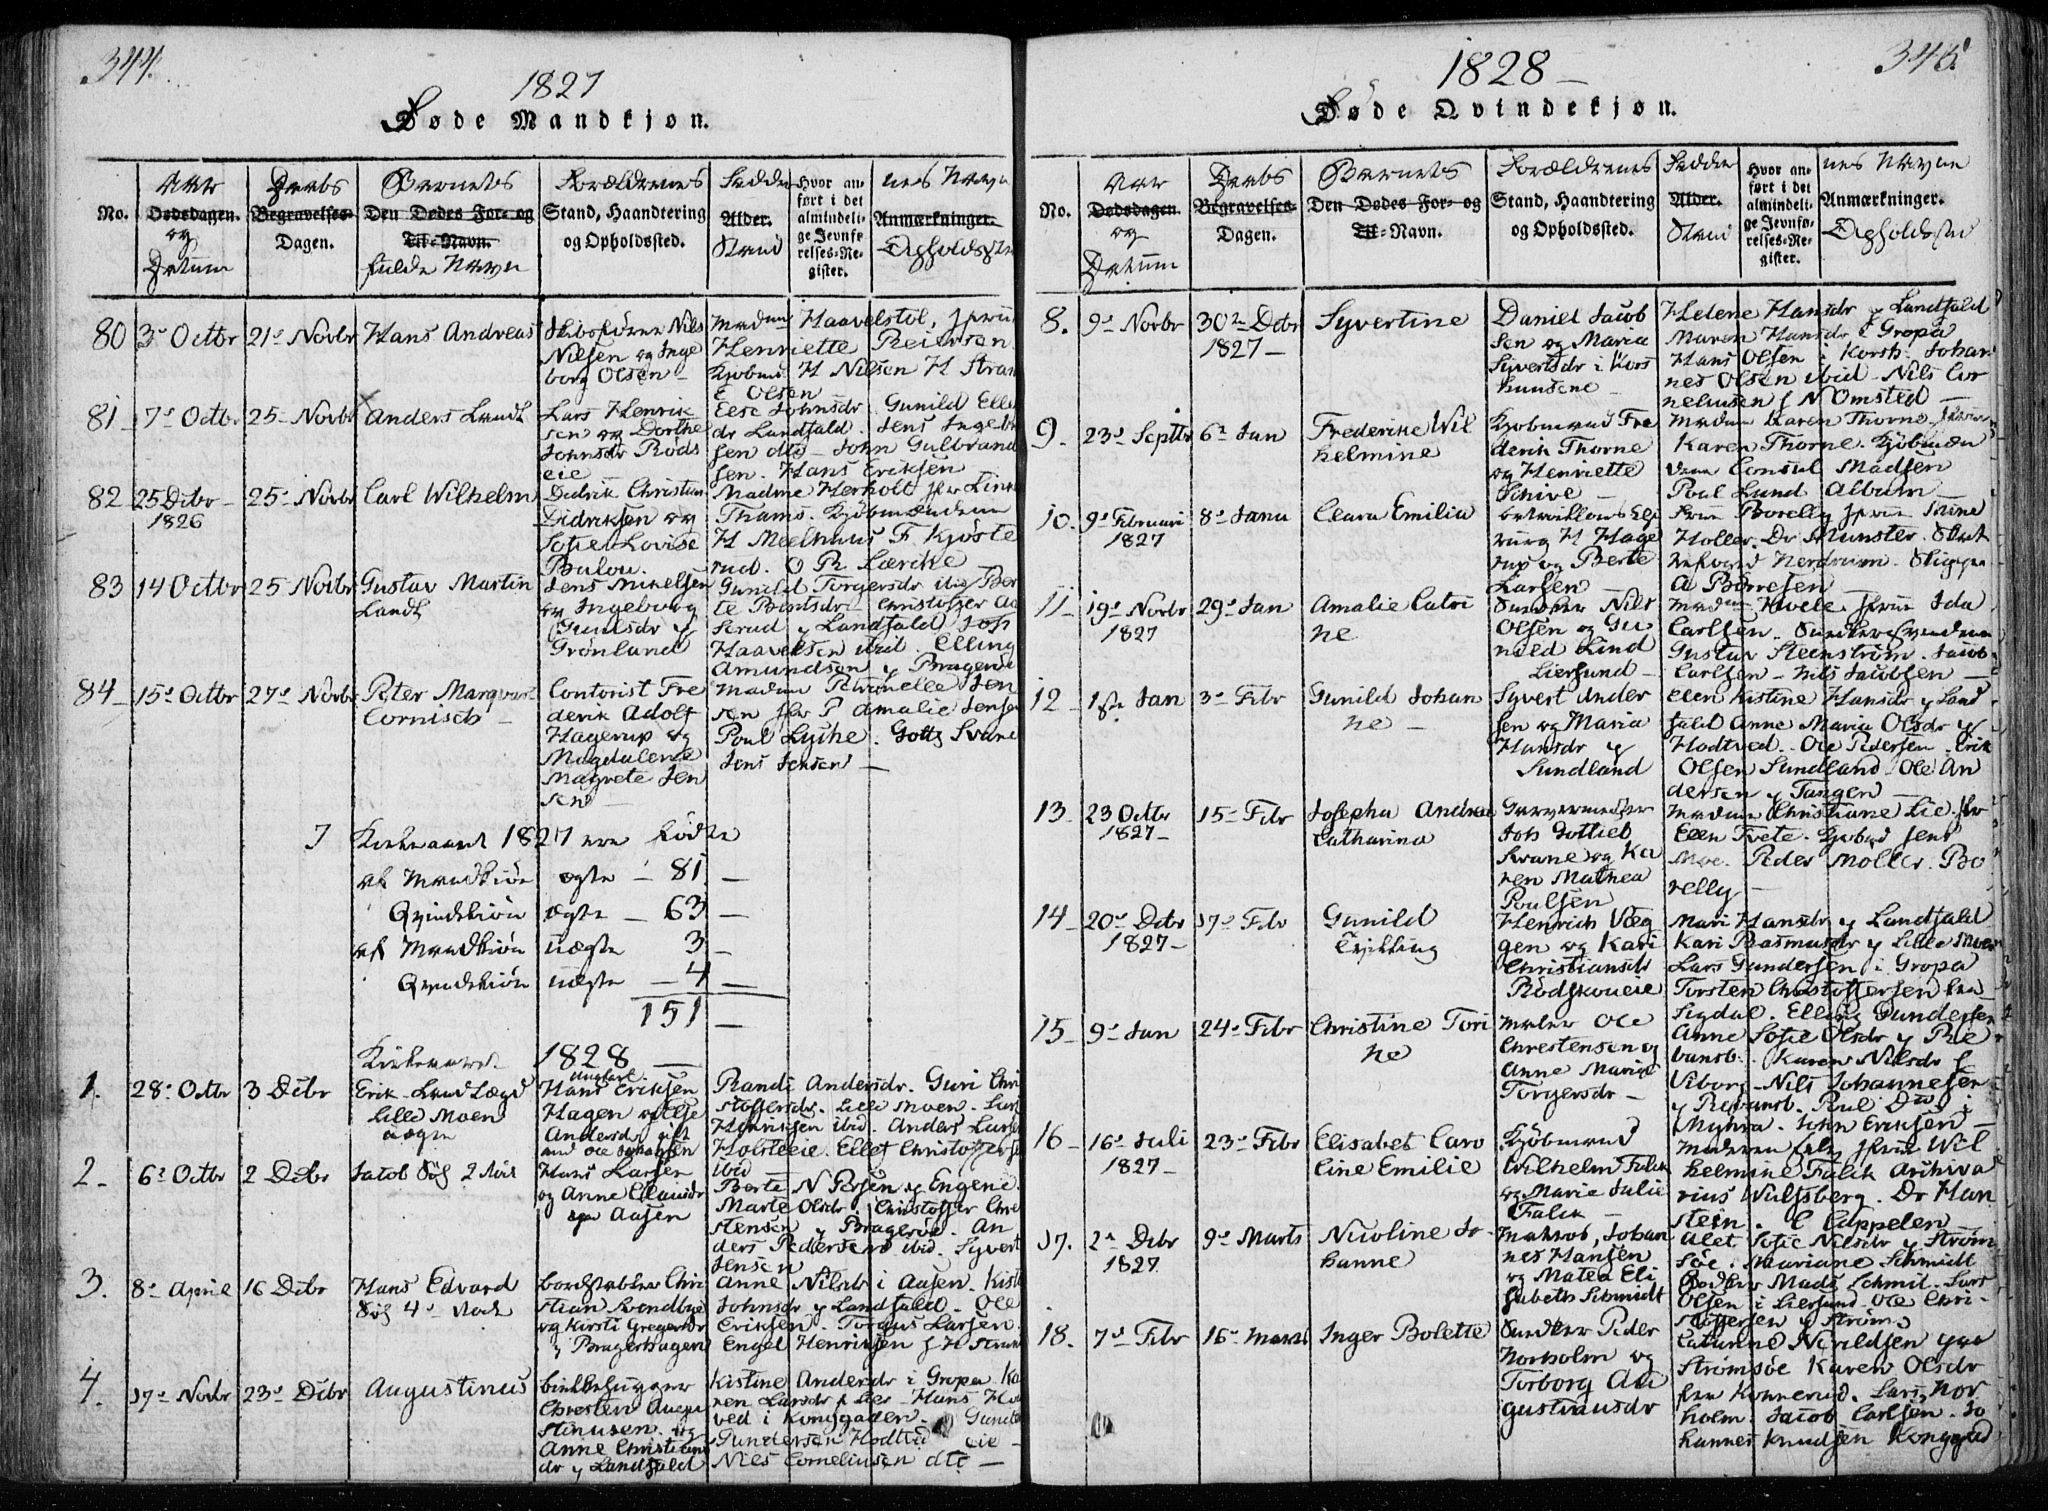 344.
1827
Døde Mandkjøn.
No.
Aar
Dødsdagen.
og
Datum
Daabs
Begravelses-
Dagen.
Barnets
Den Dødes For- og
Til-Navn.
fulde Navn
Forældrenes
Stand, Haandtering
og Opholdssted.
Fadder
Alder.
Stand
Hvor an-
ført i det
almindeli-
ge Jevnfø-
relses-Re-
gister.
nes Navn
Anmærkninger.
80 3die Octbr 21de Novbr Hans Andreas
Nils
Nilsen og Inge
borg Olsen
Madam Haavelstol, Jfru
Henriette Reiersen
Kjøbmd H Nilsen H Stran
E Olsen
81 7de Octbr 25 Novbr Anders Lundt
Lars Henrik
sen og Dorthe
Johnsdr Røds
eie
Else Johnsdr Gunild Elle
dr Landfald. Jens Ingebr
sen dto - John Gulbrand
sen. Hans Eriksen
82 25 Debr 1826 25 Novbr Carl Wilhelm
Didrik Christian
Didriksen og
Sofie Lovise
Bulou.
Madme Herholt Jfr Linn
Thams. Kjøbmændene
H Meelhuus F Kjøste
rud. O R Lærche
83 14 Octbr 25 Novbr Gustav Martin
Landt
Jens Mikelsen
og Ingeborg
Gunlsdr y
Grønland
Gunild Torgersdr ibid Ber
te Berntsdr Christoffer Aa
serud y Landfald Joh
Haavelsen ibid. Elling
Amundsen y Bragerø
84 15de Octbr 27de Novbr Peter Marqvart
Cornisch
Contorist Fre
derik Adolf
Hagerup og
Magdalene
Magrete Jen
sen
Madam Petronelle Jen
sen Jfr P Amalie Jensen
Poul Lyche. Gottf Svane
Jens Jensen
I Kirkeaaret 1827 ere fødte
af Mandkiøn ægte - 81.
Qvindekiøn ægte - 63
af Mandkiøn uægte 3
Qvindekiøn uægte - 4
151
Kirkeaaret 1828
1. 28de Octbr 3 Debr Erik
Lille Moen
uægte
Hans Eriksen
Hagen og Else
Andersdr gift
med Ole Johansen
Randi Andersdr. Guri Chri
stoffersdr. Lille Moen. Lars
Henriksen ibid. Anders Larsen
Holsteeie. Ellef Christoffersen
ibid
2 6te Octbr 2 Debr Jacob
Hans Larsen
og Anne Ellensdr
Aasen
Berte N Persen og Engene
Marte Olsdr. Christoffer Chre
stensen y Bragerøe. An
ders Pedersen ibid. Syvert
Jensen
3. 8de April 16 Debr Hans Edvard
Chri
stian Svendby
og Kirsti Gregersdr
y Bragerhagen
Anne Nilsdr i Aasen. Kist
Johnsdr y Landfald. Ole
Eriksen. Torgus Larsen.
Engel Henriksen
4. 17de Novbr 23de Debr Augustinus
Chresten Augu
stinusen og
Anne Christians
dr y Landfald
Kistine Andersdr i Gropa Ka
ren Larsdr y Lier. Hans Ho
ved i Konggaden. Gunder
Gundersen Hodtvedteie
Niels Corneliusen dto
1828
345
Døde Qvindekjøn.
No.
Aar
Dødsdagen.
og
Datum
Daabs
Begravelses-
Dagen.
Barnets
Den Dødes For- og
Til-Navn.
Forældrenes
Stand, Haandtering
og Opholdssted.
Fadder
Alder.
Stand
Hvor an-
ført i det
almindeli-
ge Jevnfø-
relses-Re-
gister.
nes Navne
Anmærkninger.
Opholdssted
8. 9de Novbr 30te Debr 1827 Syvertine
Daniel Jacob
sen og Maria
Sivertsdr i Kors
Helene Hansdr y Landfald
Maren Hansdr i Gropa
Hans Olsen i Korsh. Johan
nes Olsen ibid. Nils Cor
neliusen N Omsted
9. 23de Septbr 6te Jan Frederikke Wil
helmine
Kjøbmand Fre
derik Thorne
og Henriette
Schive
Madam Karen Thorne, Jfrue
Karen Thorne. Kjøbmæn
dene Consul Madsen
Poul Lund Album
10. 9de Februari 1827 8de Janu Clara Emilie
Batraillons Chi
rurg H Hage
rup og Berte
Larsen
Frue Borelly Jfrue Trine
Holler. Dr Munster.
A Børresen
11 19de Novbr 1827 29de Jan Amalie Catri
ne
Snedker Nils
Olsen og Gu
nild Lind
Liersund
Madam Hvele Jfrue Ida
Carlsen. Snedkersvendene
Gustav Steenstrøm. Jacob
Carlsen. Nils Jacobsen
12 1ste Jan 3de Febr Gunild Johan
ne
Syvert Ander
sen og Maria
Hansdr y
Sundland
Elen Kistine Hansdr y Land
fald Anne Maria Olsdr y
Hodtved. Ole Pedersen. Erik
Olsen Sundland. Ole An
dersen y Tangen
13. 23 Octbr 1827 15 Febr Josepha Andrea
Catharina
Garvermester
Joh Gottlieb
Svane og Ka
ren Mathea
Poulsen
Madam Christiane Lie. Jfr
Elen Tvete. Kjøbmd Jens
Moe. Peder Møller. Bo
relly
14 20de Debr 1827 17de Febr Gunild
Tvilling
Henrich Veg
gen og Kari
Christiansdr
Rødskoueie
Mari Hansdr y Landfald
Kari Rasmusdr y Lille Moen
Lars Gundersen i Gropa
Torsten Christoffersen fra
Sigdal. Elling Gundersen
15. 9de Jan 24de Febr Christine Tori
ne
Maler Ole
Chrestensen og
Anne Maria
Torgersdr
Anne Sofie Olsdr y Re
bansb. Karen Nilsdr f
Viborg. Nils Johannesen
y Rebansb. Poul Dto i
Myhra. John Eriksen
16 16de Juli 1827 23de Febr Elisabet Caro
line Emilie
Kjøbmand
Wilhelm Falck
og Marie Julie
Falck
Madam Jfrue Wil
helmine Falck Archiva
rius Wulfsberg. Dr Han
stein. C Cappelen
17. 2den Debr 1827 9de Marts Nicoline Jo-
hanne
Matros Johan
nes Hansen
og Matea Eli
sabeth Schmidt
Alet Sofie Nilsdr y Strøm
søe. Mariane Schmidt
Mads Schmit. Lars
Olsen i Liersund. Ole Chri-
stoffersen y Strøms
18. 7de Febr 16de Marts Inger Bolette
Snedker Peder
Norholm og
Torborg Au
gustinusdr
Catrine Nerildsen paa
Strømsøe Karen Olsdr
fra Konnerud. Lars Nor
holm. Jacob Carlsen. Jo
hannes Knudsen Konggad